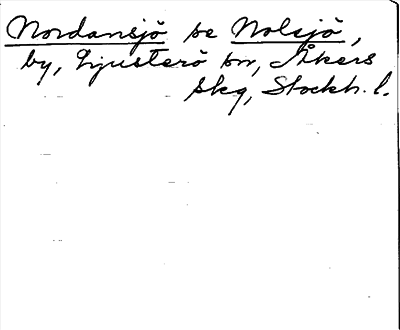 Nordansjö se Nolsjö,
by, Ljusterö sn, Åkers
skg, Stockh. l.